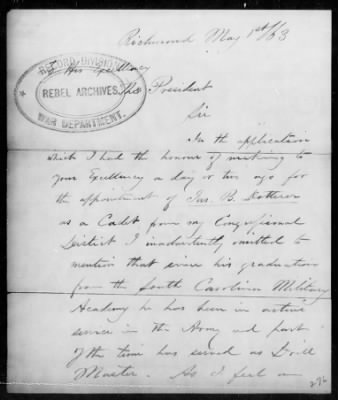 Richmond May 1st/63
RECORD DIVISION
REBEL ARCHIVES.
WAR DEPARTMENT.
To His Excellency
The President
Sir
In the application
which I had the honour of making to
your Excellency a day or two ago for
the appointment of Jas. B. Dotterer
as a Cadet from my Congressional
District I inadvertently omitted to
mention that since his graduation
from the South Carolina Military
Academy he has been in active
service in the Army and part
of the time has served as Drill
Master. As I feel an